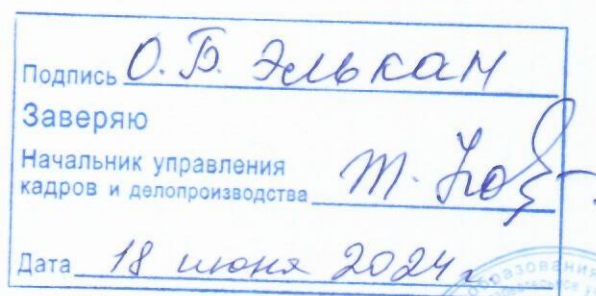 Подпись О. Б. Элькан
Заверяю
Начальник управления
кадров и делопроизводства
Дата 18 июня 2024 г
образования